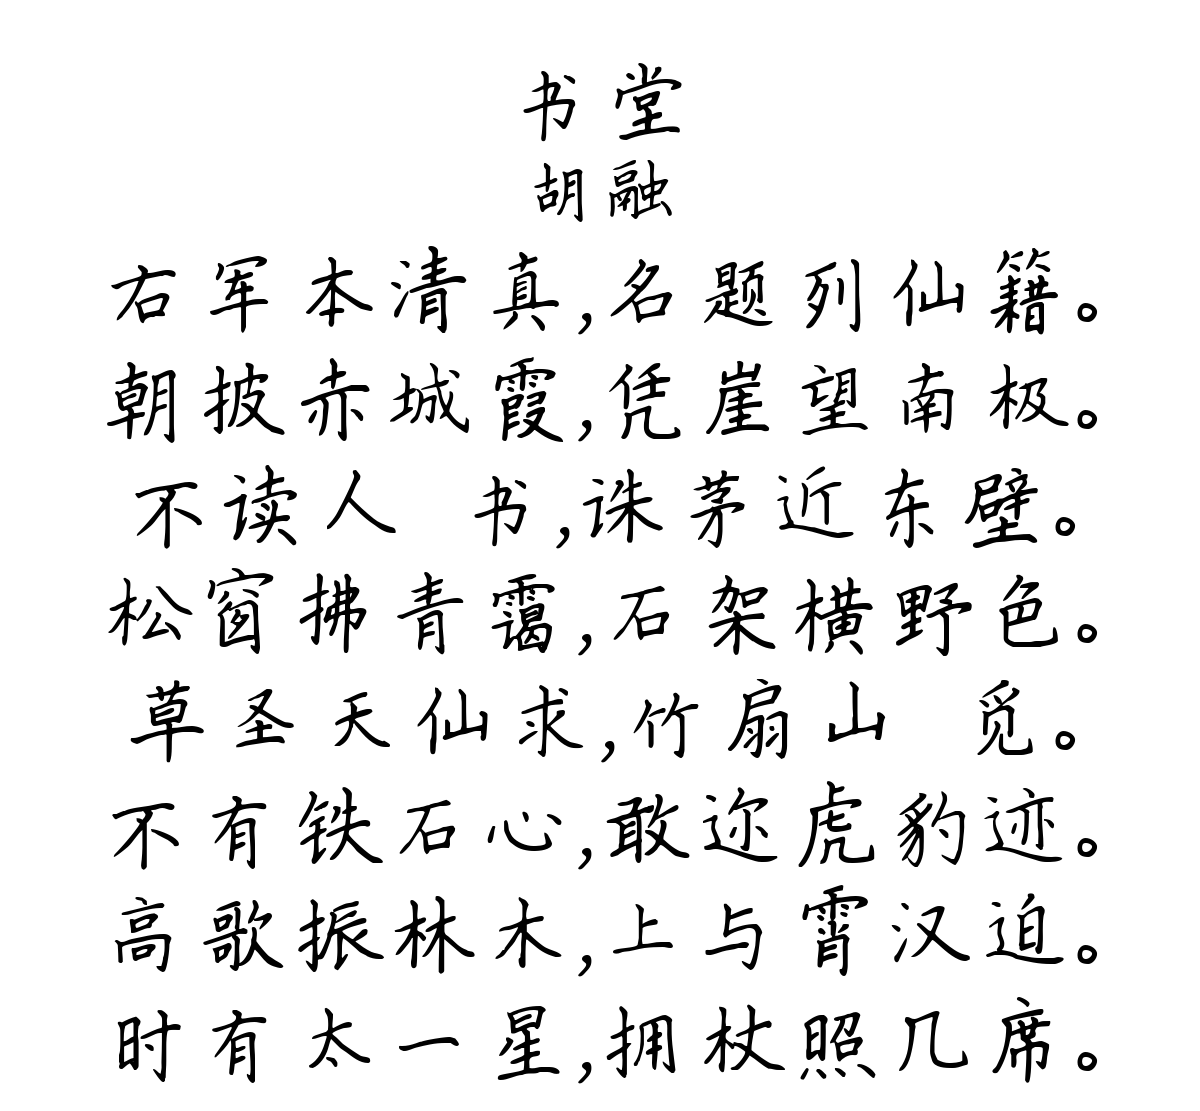 书堂
胡融
右军本清真,名题列仙籍。
朝披赤城霞,凭崖望南极。
不读人 书,诛茅近东壁。
松窗拂青霭,石架横野色。
草圣天仙求,竹扇山 觅。
不有铁石心,敢迩虎豹迹。
高歌振林木,上与霄汉迫。
时有太一星,拥杖照几席。